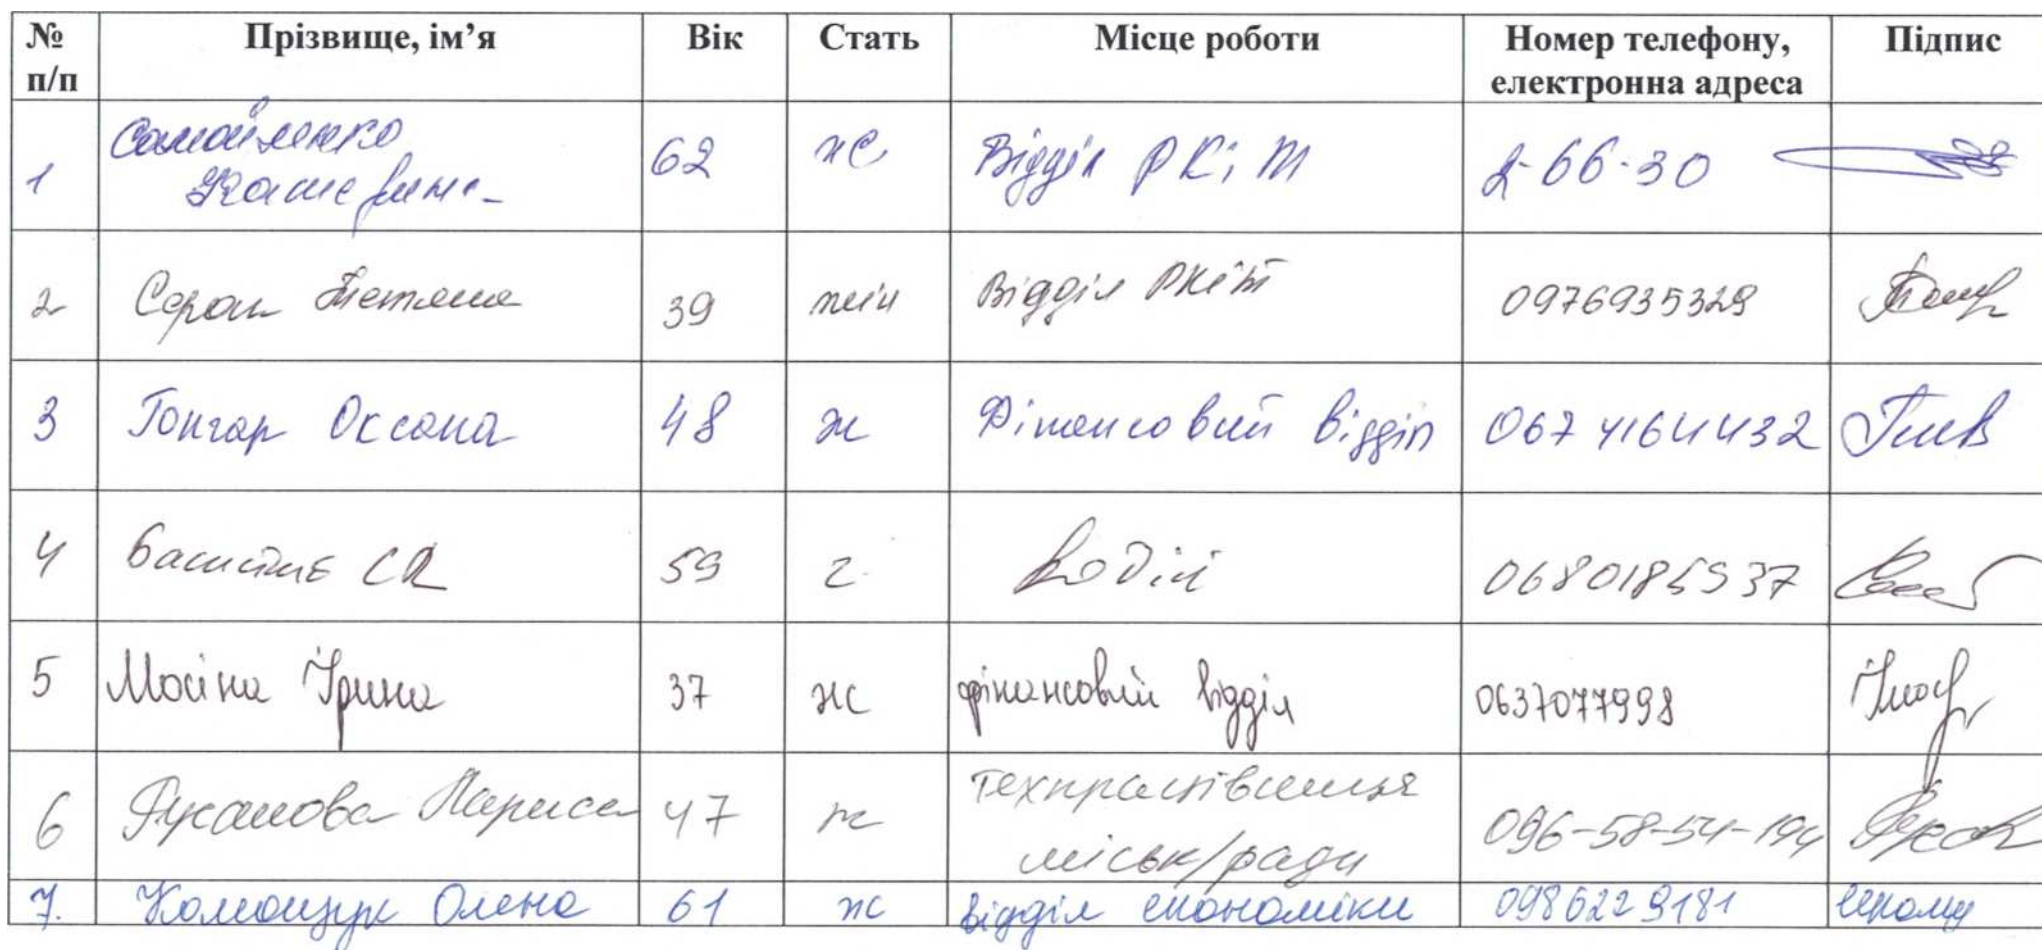 № п/п Прізвище, ім’я Вік Стать Місце роботи Номер телефону, електронна адреса Підпис
1 Самойленко Катерина 62 ж Відділ РКіТ 2-66-30
2 Серан Тетяна 39 жін Відділ РКіТ 0976935329
3 Гонгар Оксана 48 ж Фінансовий відділ 067 4164432
4 59 Водій 0680185937
5 Мосіна Ірина 37 ж фінансовий відділ 0637077998
6 Лариса 47 ж Техпрацівниця міськ/ради 096-58-54-194
7. Комощук Олена 61 ж відділ економіки 0986229181